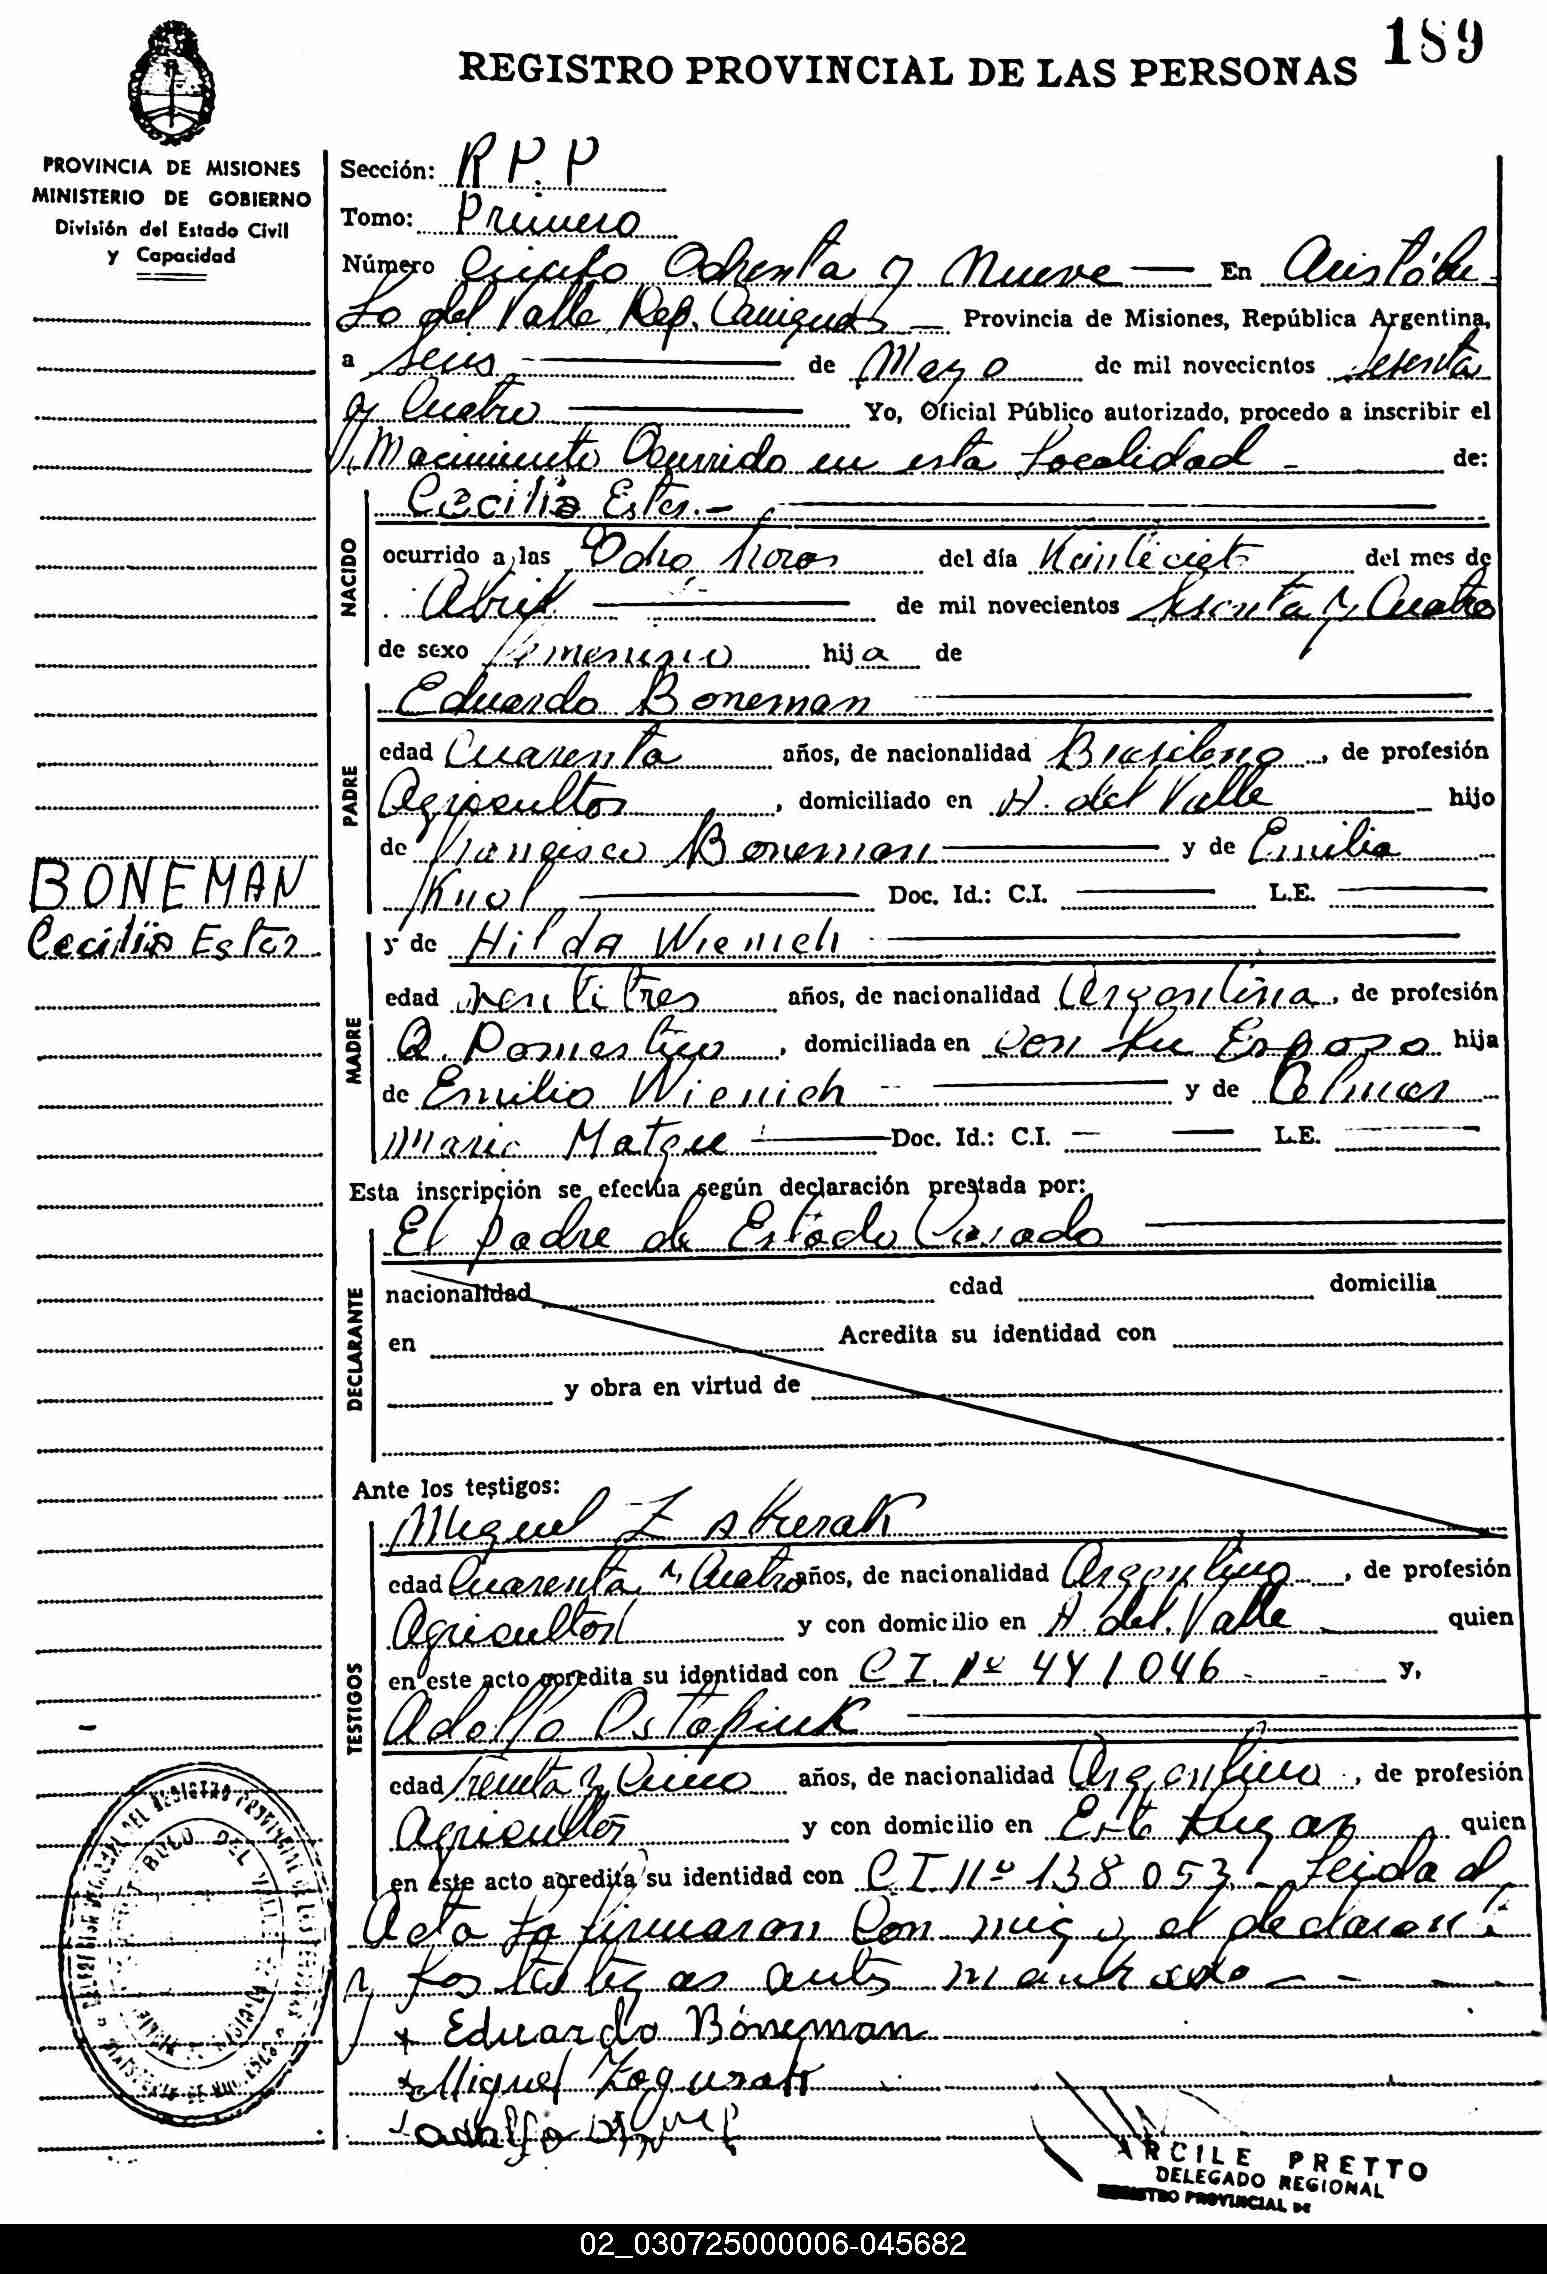 189
REGISTRO PROVINCIAL DE LAS PERSONAS
PROVINCIA DE MISIONES
MINISTERIO DE GOBIERNO
División del Estado Civil
y Capacidad
Sección: R.P.P
Tomo: Primero
Número Ciento Ochenta y Nueve — En Aristóbu
lo del Valle, Dep. Cainguas — Provincia de Misiones, República Argentina,
a Seis — de Mayo de mil novecientos Sesenta
y Cuatro — Yo, Oficial Público autorizado, procedo a inscribir el
Nacimiento Ocurrido en esta Localidad - de:
NACIDO
Cecilia Ester.-
ocurrido a las Ocho horas del día Veintiseiete del mes de
Abril — de mil novecientos Sesenta y Cuatro
de sexo femenino hija de
PADRE
Eduardo Boneman
edad Cuarenta años, de nacionalidad Brasileno, de profesión
Agricultor, domiciliado en A. del Valle hijo
de Francisco Boneman — y de Emilia
Knol — Doc. Id.: C.I. — L.E. —
BONEMAN
Cecilia Ester
MADRE
y de Hilda Wienich
edad Ventitres años, de nacionalidad Argentina, de profesión
Q. Domestico, domiciliada en con su Esposo hija
de Emilio Wienich — y de
Maria — Doc. Id.: C.I. — L.E. —
Esta inscripción se efectúa según declaración prestada por:
DECLARANTE
El padre de Estado Casado
nacionalidad edad domicilia
en Acredita su identidad con
y obra en virtud de
Ante los testigos:
TESTIGOS
Miguel
edad Cuarenta y Cuatro años, de nacionalidad Argentino, de profesión
Agricultor y con domicilio en A. del Valle quien
en este acto acredita su identidad con C.I. Nº 441046 - y,
Adolfo Ostapiuk
edad Treinta y Cinco años, de nacionalidad Argentino, de profesión
Agricultor y con domicilio en Este Lugar quien
en este acto acredita su identidad con C I Nº 138053 - Leida el
Acta la firmaron con migo el declarante
y los testigos antes
Eduardo Boneman
Miguel Zagurak
Adolfo
ARCILE PRETTO
DELEGADO REGIONAL
REGISTRO PROVINCIAL DE
02_030725000006-045682